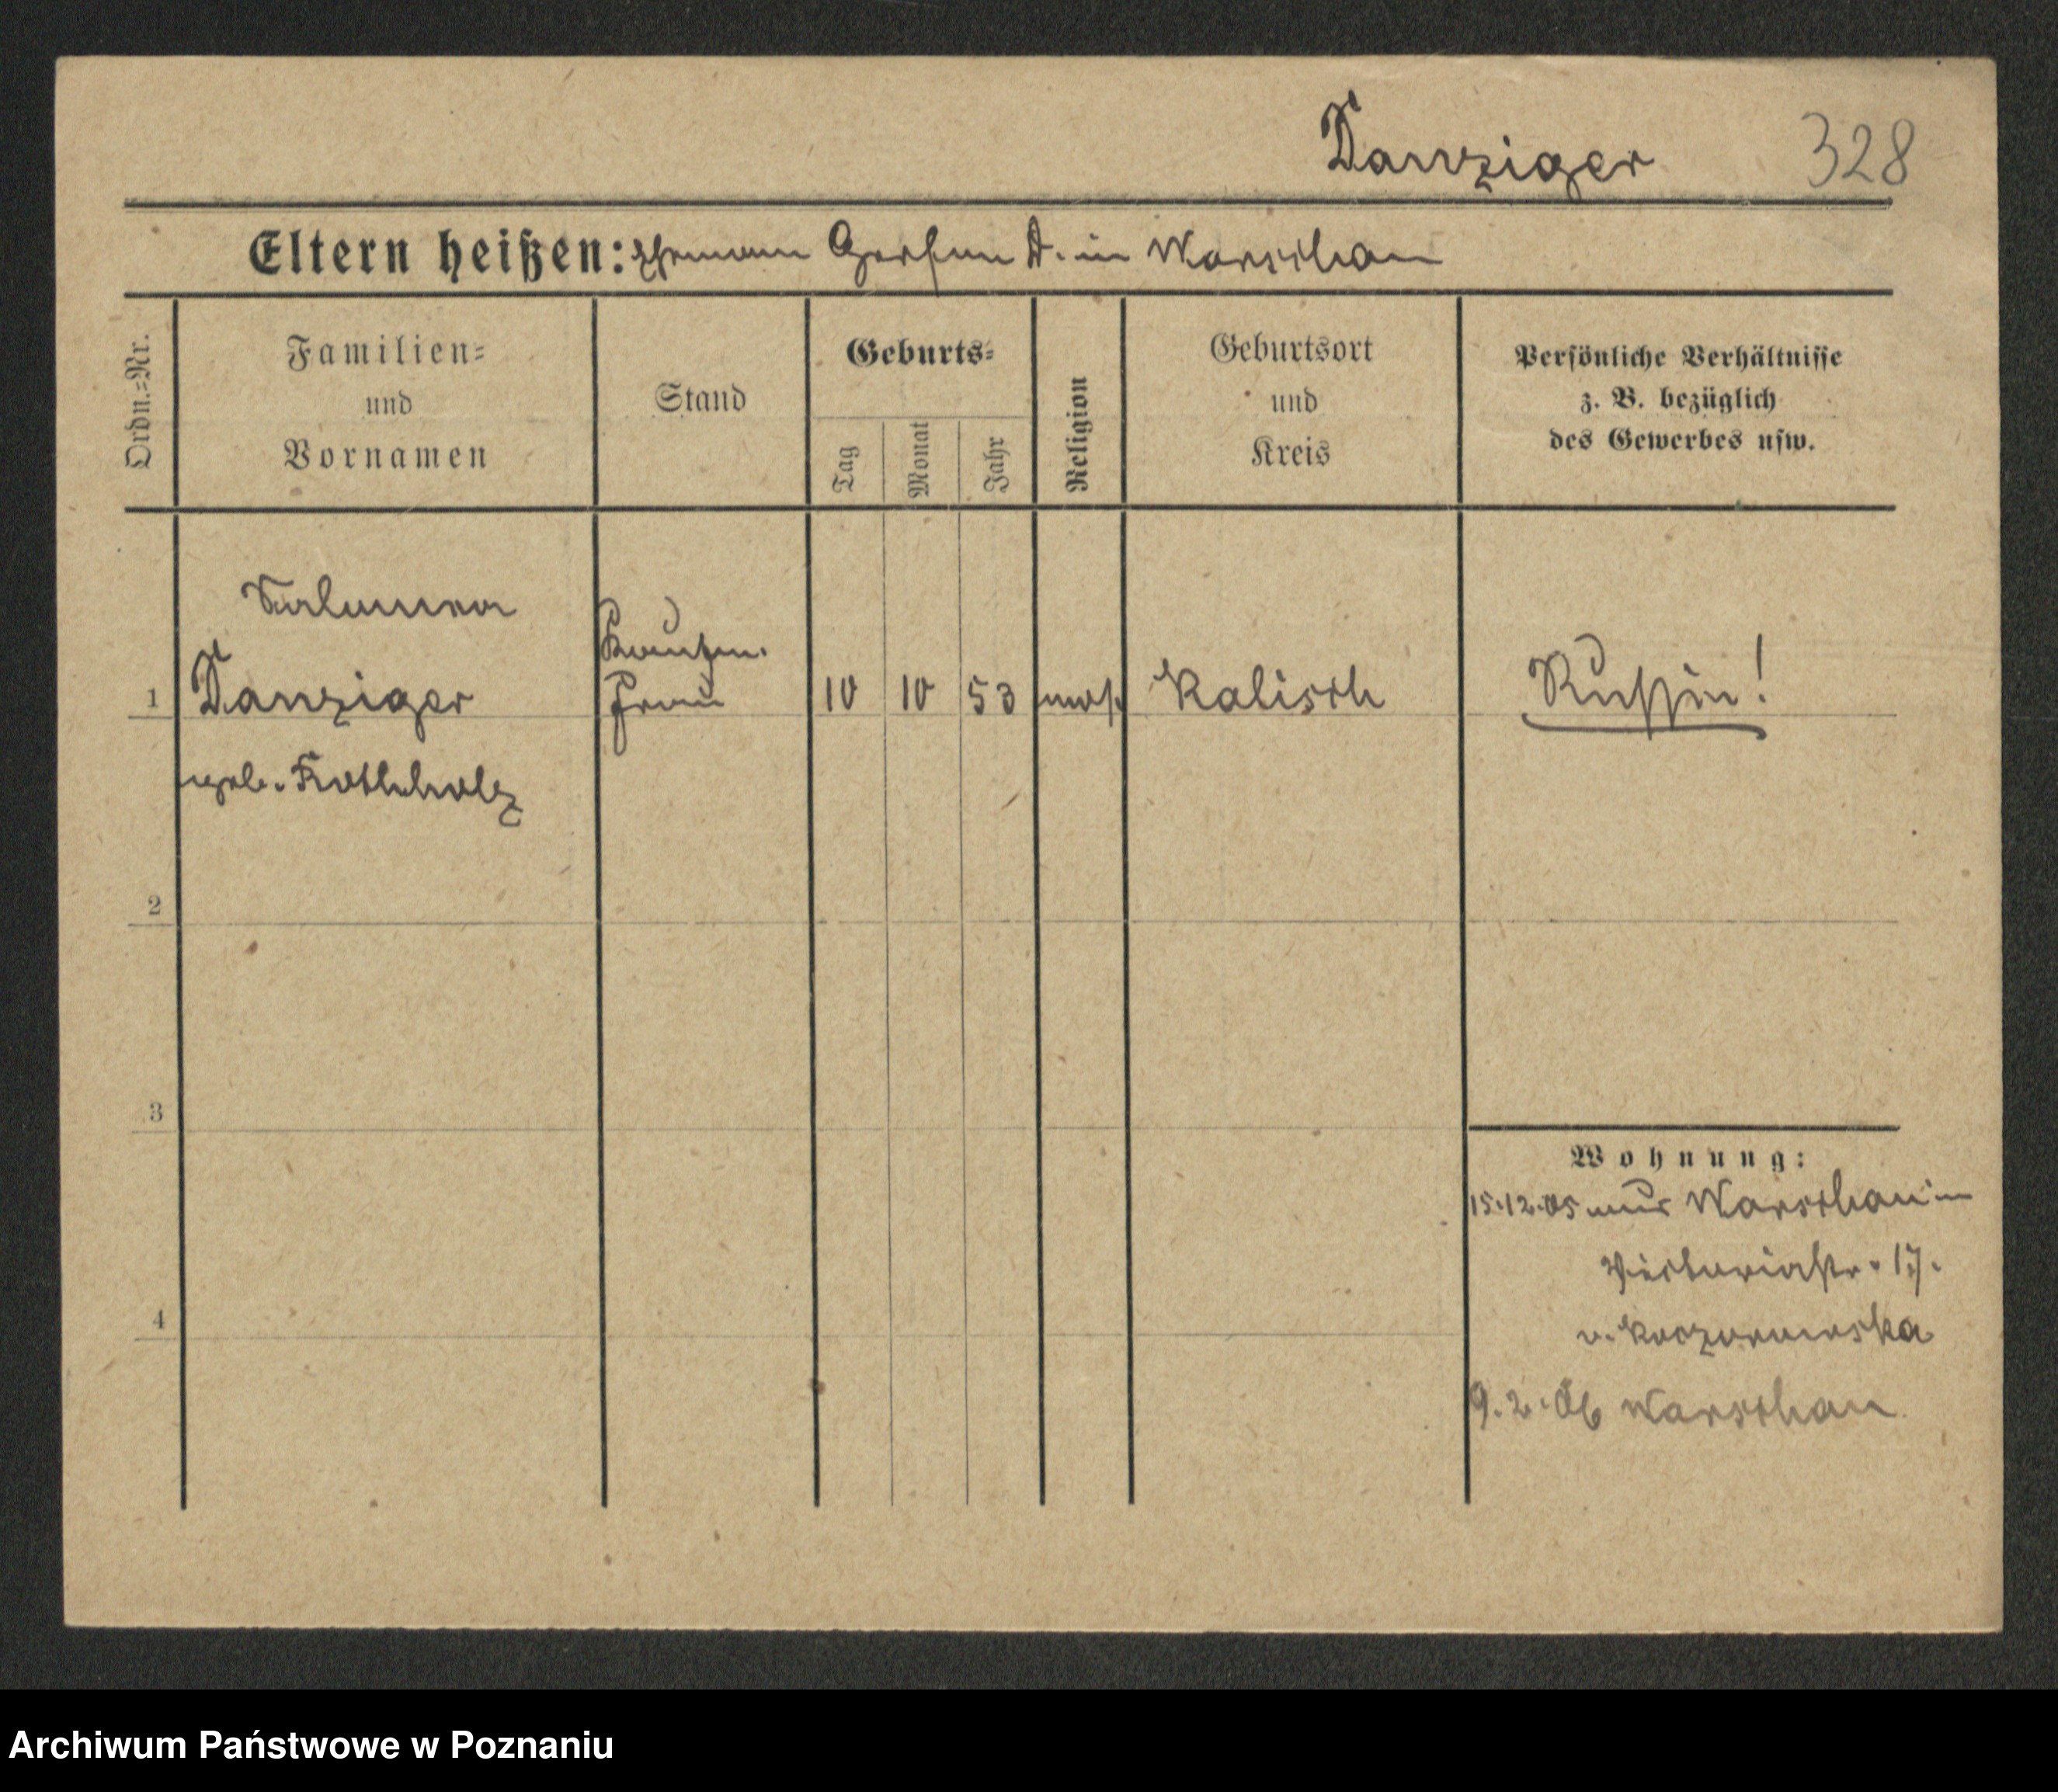 Danziger 328
Eltern heißen: Ehemann Gerson D. in Warschau
Ordn.=Nr.
Familien=
und
Vornamen
Stand
Geburts=
Tag
Monat
Jahr
Religion
Geburtsort
und
Kreis
Persönliche Verhältnisse
z. B. bezüglich
des Gewerbes usw.
Salomea
Kaufm.
1 Danziger Frau 10 10 53 mos. Kalisch Russin!
geb. Rothholz
2
3
Wohnung:
15.12.05 aus Warschau in
Victoriastr. 17.
4
9.2.06 Warschau
Archiwum Państwowe w Poznaniu